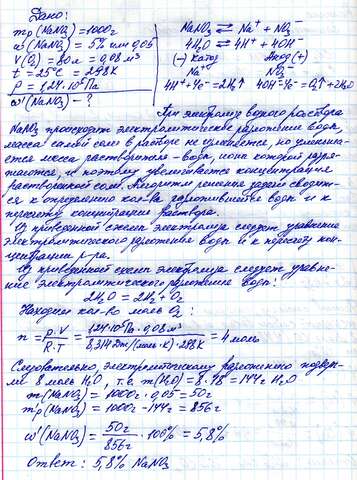 Дано:
mр(NaNO₃)=1000г
ω(NaNO₃) = 5% или 0,05
V(O₂) = 80л = 0,08 м³
t = 25°C = 298К
P = 1,24·10⁵Па
ω'(NaNO₃) - ?
NaNO₃ ⇄ Na⁺ + NO₃⁻
4H₂O ⇄ 4H⁺ + 4OH⁻
(-) Катод Анод (+)
Na⁺ NO₃⁻
4H⁺+4e⁻=2H₂↑ 4OH⁻-4e⁻=O₂↑+2H₂O
При электролизе водного раствора
NaNO₃ происходит электролитическое разложение воды,
масса самой соли в растворе не изменяется, но уменьша-
ется масса растворителя - воды, ионы которой разря-
жаются, и поэтому увеличивается концентрация
растворенной соли. Алгоритм решения задачи сводит-
ся к определению кол-ва разложившейся воды и к
пересчету концентрации раствора.
Из приведенной схемы электролиза следует уравнение
электролитического разложения воды и к пересчету кон-
центрации р-ра.
Из приведенной схемы электролиза следует уравне-
ние электролитического разложения воды:
2H₂O = 2H₂ + O₂
Находим кол-во моль O₂:
n = P·V / R·T = 1,24·10⁵Па · 0,08м³ / 8,314 Дж/(моль·К)·298К = 4 моль
Следовательно, электролитическому разложению подверг-
ли 8 моль H₂O, т.е. m(H₂O) = 8·18 = 144г H₂O
m(NaNO₃) = 1000г·0,05 = 50г
mр(NaNO₃) = 1000г - 144г = 856г
ω'(NaNO₃) = 50г / 856г · 100% = 5,8%
Ответ: 5,8% NaNO₃